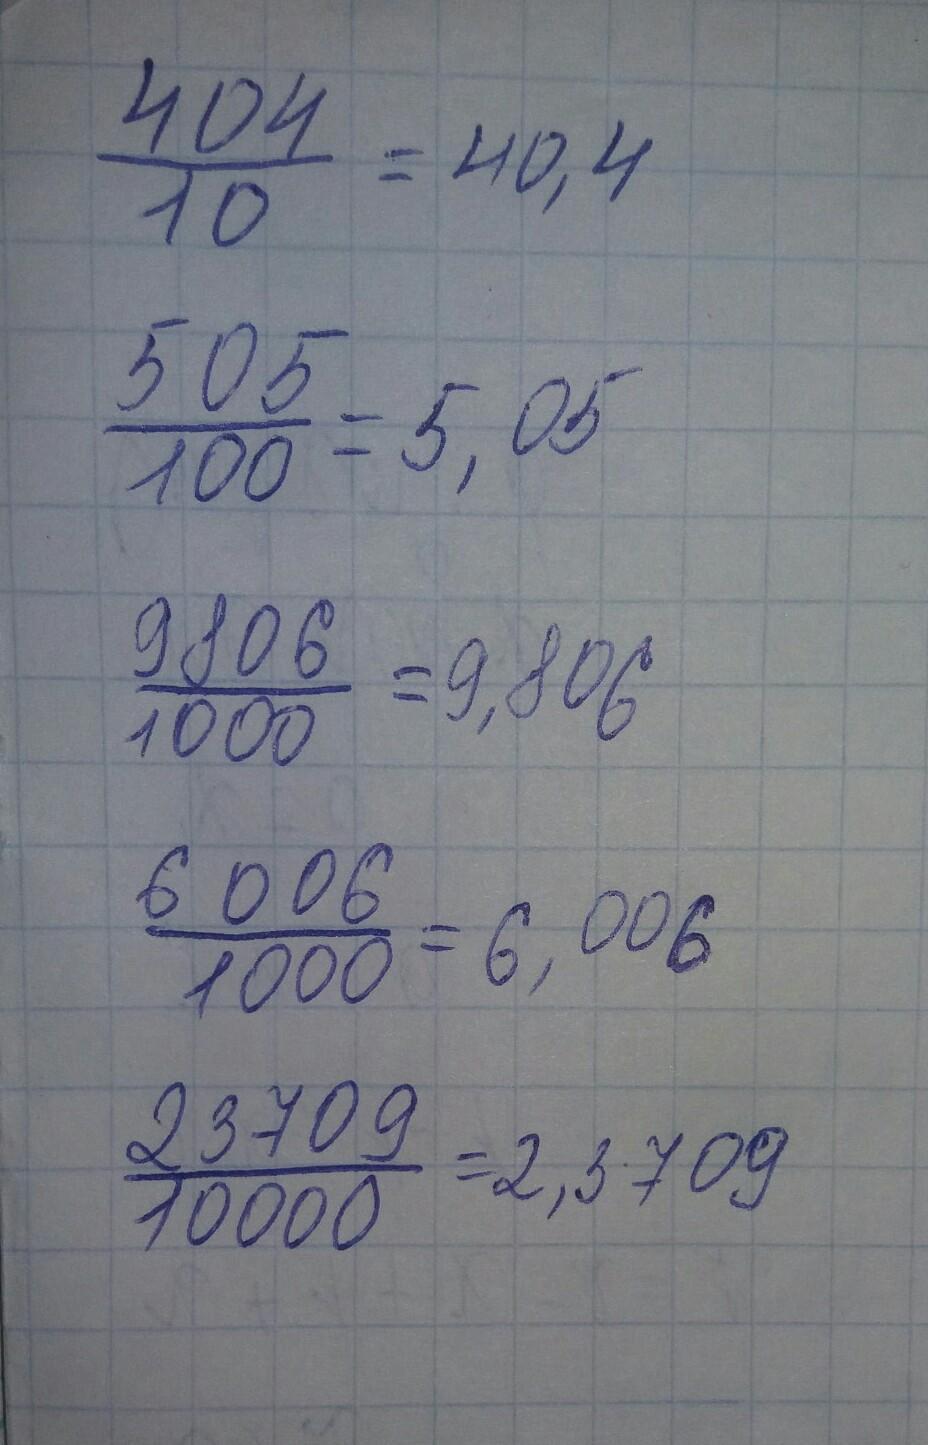 404/10 = 40,4
505/100 = 5,05
9806/1000 = 9,806
6006/1000 = 6,006
23709/10000 = 2,3709